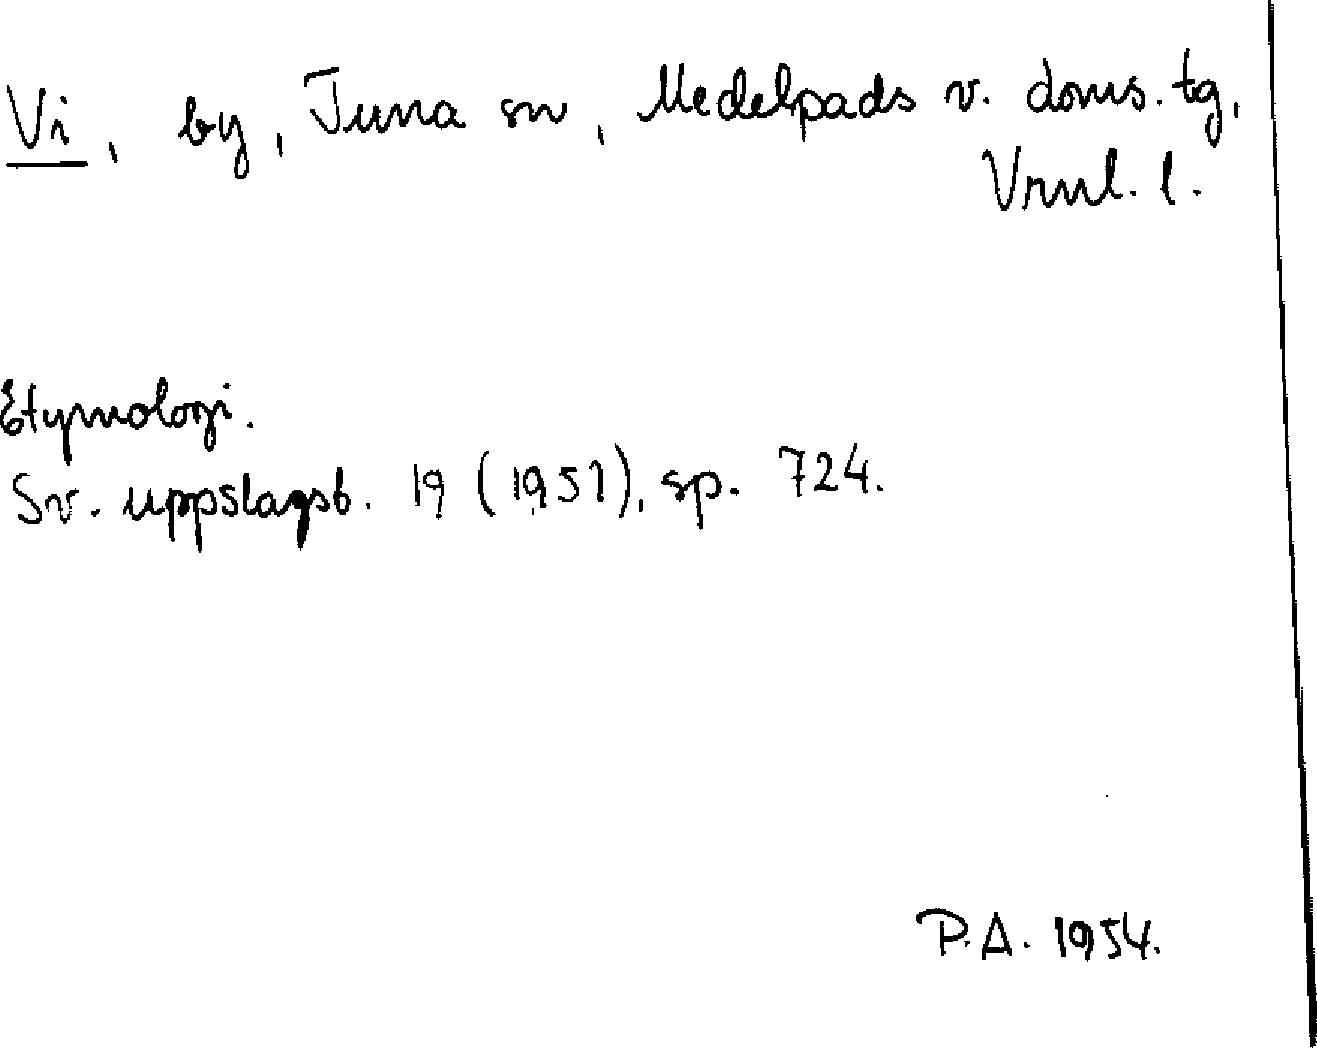 Vi, by, Tuna sn, Medelpads v. doms. tg,
Vrnl. l.
Etymologi.
Sv. uppslagsb. 19 (1951), sp. 724.
P.A. 1954.